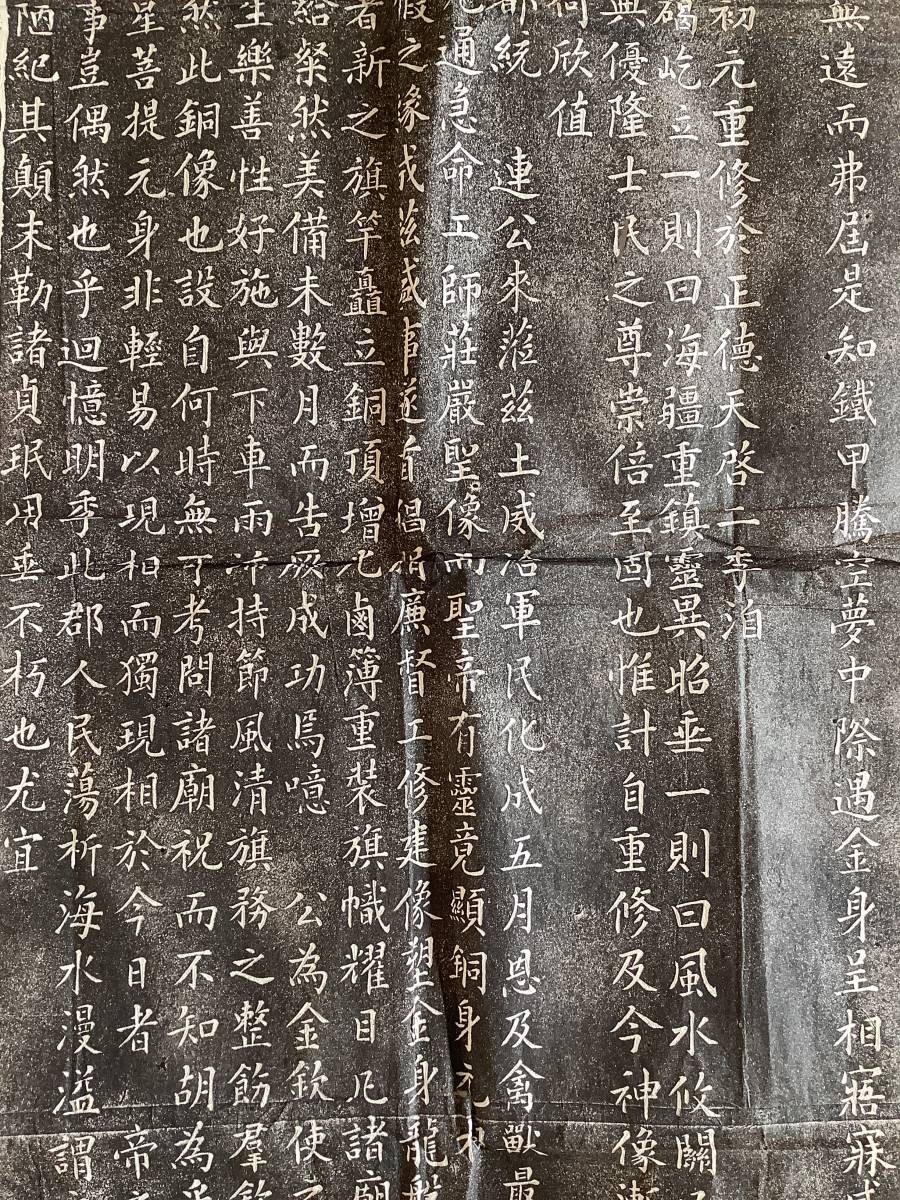 無遠而弗屆是知鐵甲騰空夢中際遇金身呈相寤寐
初元重修於正德天啓二季洎
碣屹立一則曰海疆重鎮靈異昭垂一則曰風水攸關
典優隆士民之尊崇倍至固也惟計自重修及今神像
何欣值
都統 連公來蒞茲土威洽軍民化成五月恩及禽獸最
通急命工師莊嚴聖像而聖帝有靈竟顯銅身元
之緣成茲盛事遂首倡捐廉督工修建像塑金身龍
者新之旗竿矗立銅頂增光鹵簿重裝旗幟耀目凡諸廟
給粲然美備未數月而告厥成功焉噫 公為金欽使之
生樂善性好施與下車雨沛持節風清旗務之整飭羣欽
然此銅像也設自何時無可考問諸廟祝而不知胡為乎
星菩提元身非輕易以現相而獨現相於今日者 帝
事豈偶然也乎迴憶明季此郡人民蕩析海水漫溢謂
陋紀其顛末勒諸貞珉用垂不朽也尤宜